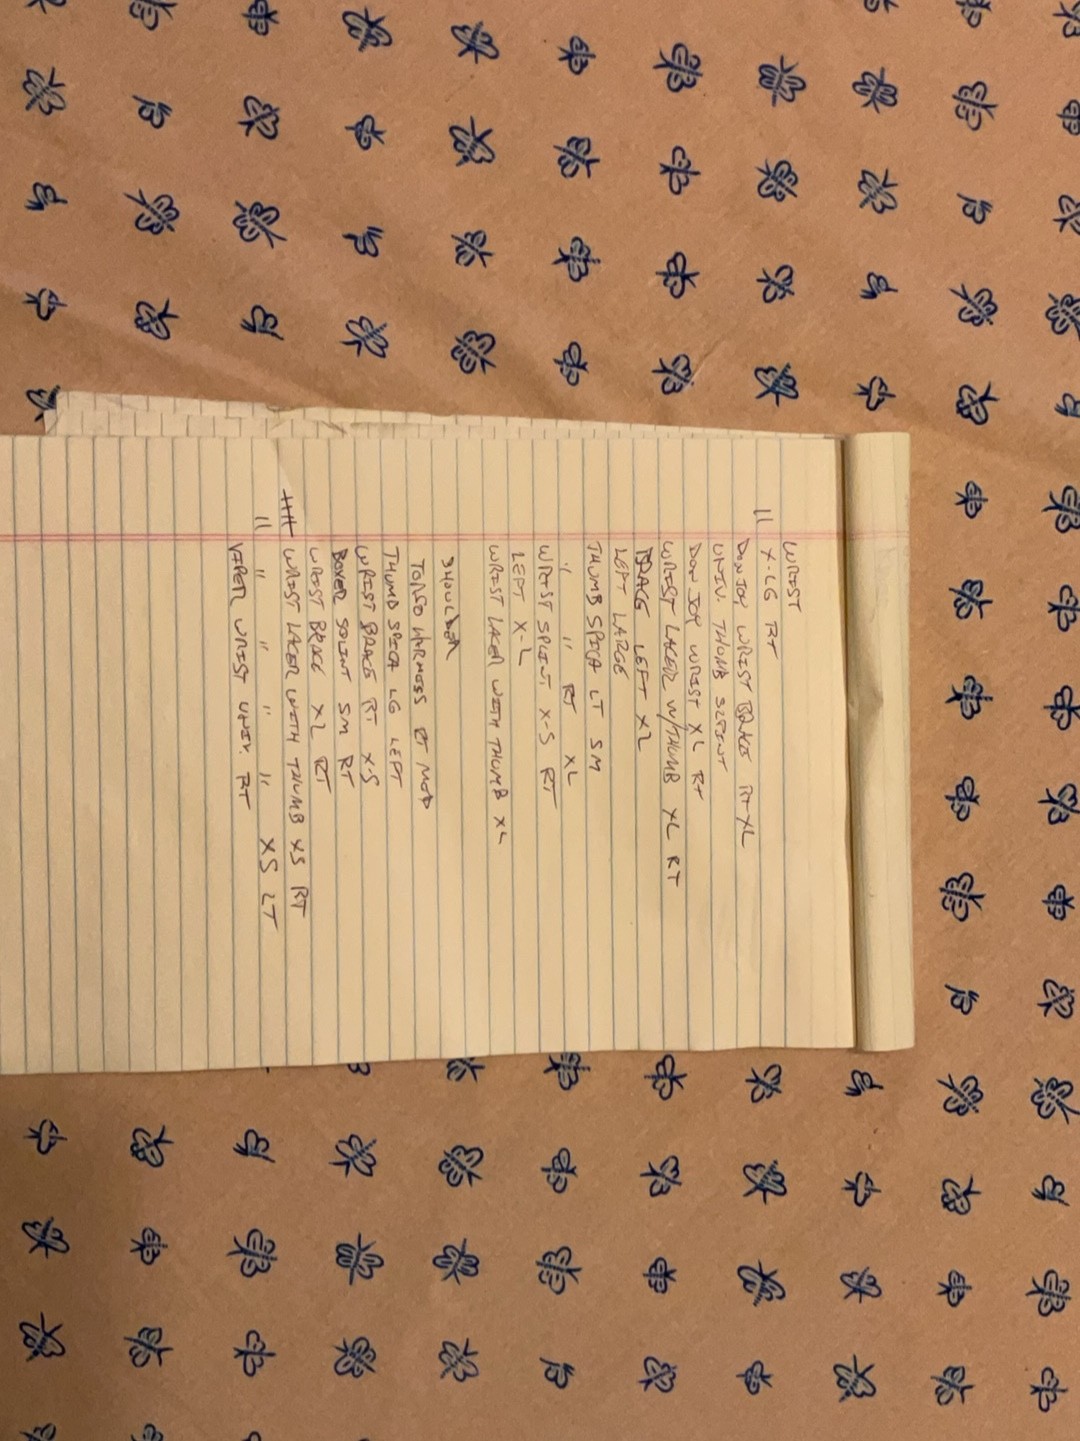 WRIST
|| X-LG RT
DON JOY WRIST BRACE RT XL
UNIV. THUMB SPLINT
DON JOY WRIST XL RT
WRIST LACER W/THUMB XL RT
BRACE LEFT XL
LEFT LARGE
THUMB SPICA LT SM
" " RT XL
WRIST SPLINT X-S RT
LEFT X-L
WRIST LACER WITH THUMB XL
SHOULDER
TORSO HARNESS RT MED
THUMB SPICA LG LEFT
WRIST BRACE RT X-S
BOXER SPLINT SM RT
WRIST BRACE XL RT
WRIST LACER WITH THUMB XS RT
|| " " " " XS LT
VIPER WRIST UNIV. RT